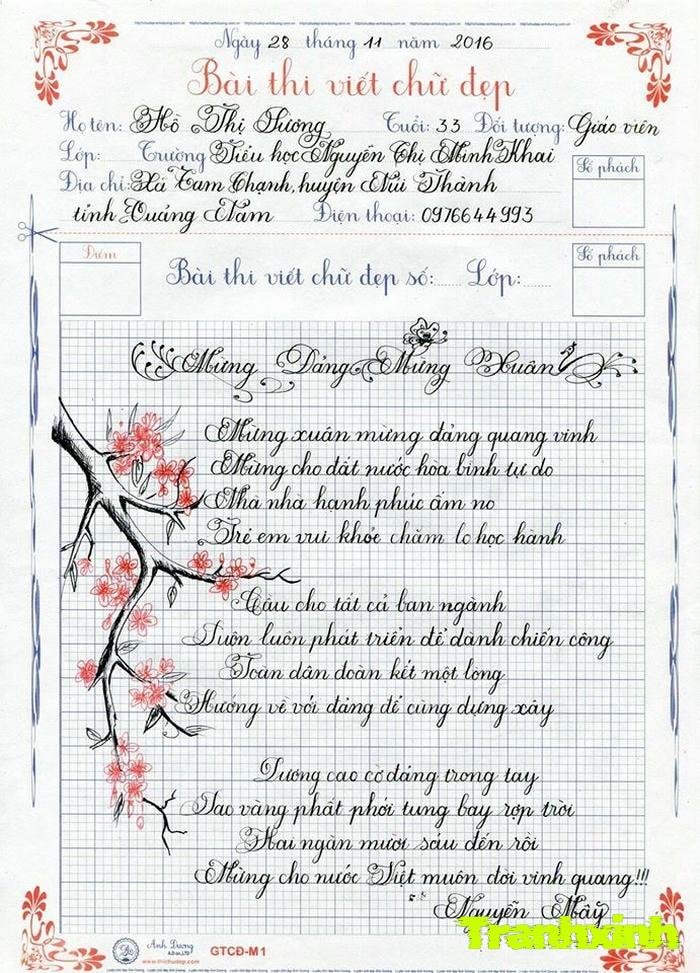 Ngày 28 tháng 11 năm 2016
Bài thi viết chữ đẹp
Họ tên: Hồ Thị Sương Tuổi: 33 Đối tượng: Giáo viên
Lớp: Trường Tiểu học Nguyễn Thị Minh Khai
Địa chỉ: Xã Tam Thạnh, huyện Núi Thành
tỉnh Quảng Nam Điện thoại: 0976644993
Số phách
Điểm
Bài thi viết chữ đẹp số: Lớp:
Số phách
Mừng Đảng Mừng Xuân
Mừng xuân mừng đảng quang vinh
Mừng cho đất nước hòa bình tự do
Nhà nhà hạnh phúc ấm no
Trẻ em vui khỏe chăm lo học hành
Cầu cho tất cả ban ngành
Luôn luôn phát triển để dành chiến công
Toàn dân đoàn kết một lòng
Hướng về với đảng để cùng dựng xây
Dương cao cờ đảng trong tay
Sao vàng phất phới tung bay rợp trời
Hai ngàn mười sáu đến rồi
Mừng cho nước Việt muôn đời vinh quang!!!
Nguyễn Mây
Tranhxinh
Ánh Dương
www.thichudep.com
GTCĐ-M1